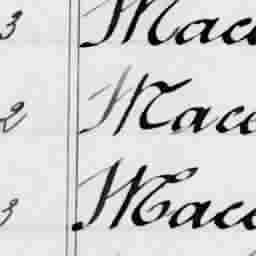 3 Mace
2 Mace
3 Mace